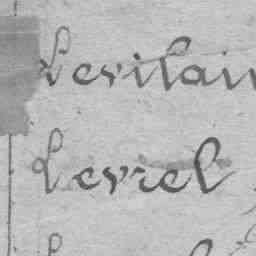 Levilain
Levrel